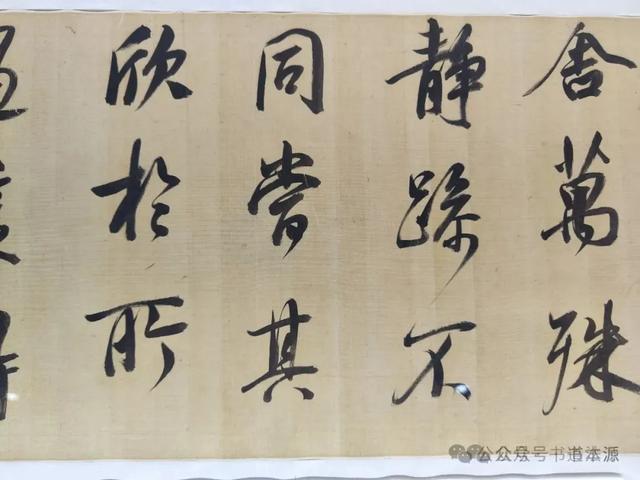 舍萬殊
靜躁不
同當其
欣於所
公众号书道本源